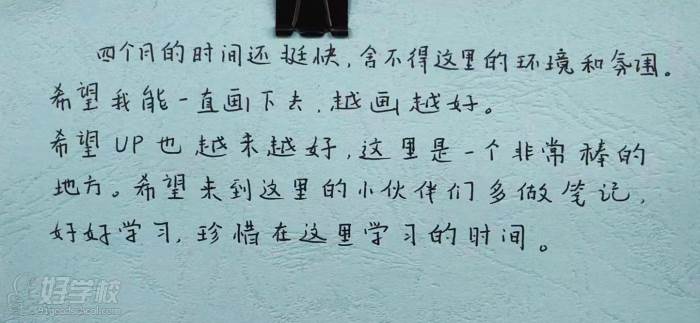 四个月的时间还挺快,舍不得这里的环境和氛围。
希望我能一直画下去,越画越好。
希望UP也越来越好,这里是一个非常棒的
地方。希望来到这里的小伙伴们多做笔记,
好好学习,珍惜在这里学习的时间。
好学校
91goodschool.com